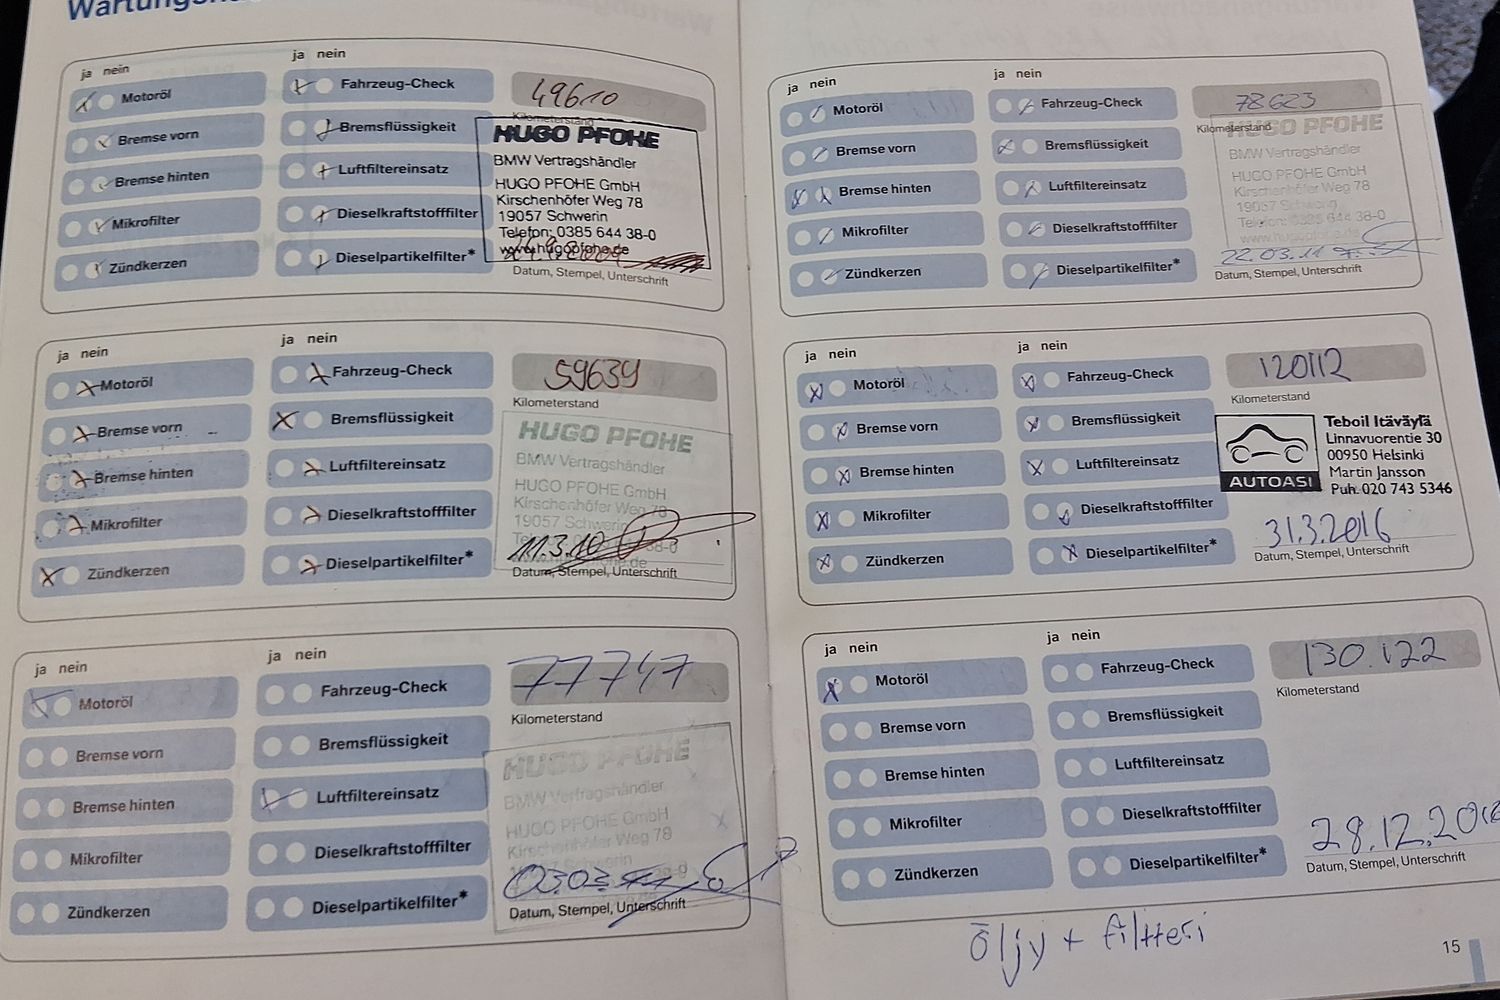 ja nein
ja nein
Motoröl
Bremse vorn
Bremse hinten
Mikrofilter
Zündkerzen
Fahrzeug-Check
Bremsflüssigkeit
Luftfiltereinsatz
Dieselkraftstofffilter
Dieselpartikelfilter*
49610
Kilometerstand
HUGO PFOHE
BMW Vertragshändler
HUGO PFOHE GmbH
Kirschenhöfer Weg 78
19057 Schwerin
Telefon: 0385 644 38-0
www.hugopfohe.de
Datum, Stempel, Unterschrift
ja nein
ja nein
Motoröl
Bremse vorn
Bremse hinten
Mikrofilter
Zündkerzen
Fahrzeug-Check
Bremsflüssigkeit
Luftfiltereinsatz
Dieselkraftstofffilter
Dieselpartikelfilter*
59639
Kilometerstand
HUGO PFOHE
BMW Vertragshändler
HUGO PFOHE GmbH
Kirschenhöfer Weg 78
19057 Schwerin
11.3.10
Datum, Stempel, Unterschrift
ja nein
ja nein
Motoröl
Bremse vorn
Bremse hinten
Mikrofilter
Zündkerzen
Fahrzeug-Check
Bremsflüssigkeit
Luftfiltereinsatz
Dieselkraftstofffilter
Dieselpartikelfilter*
77747
Kilometerstand
HUGO PFOHE
BMW Vertragshändler
HUGO PFOHE GmbH
Kirschenhöfer Weg 78
Datum, Stempel, Unterschrift
ja nein
ja nein
Motoröl
Bremse vorn
Bremse hinten
Mikrofilter
Zündkerzen
Fahrzeug-Check
Bremsflüssigkeit
Luftfiltereinsatz
Dieselkraftstofffilter
Dieselpartikelfilter*
78623
Kilometerstand
HUGO PFOHE
BMW Vertragshändler
HUGO PFOHE GmbH
Kirschenhöfer Weg 78
19057 Schwerin
Telefon: 0385 644 38-0
www.hugopfohe.de
22.03.11
Datum, Stempel, Unterschrift
ja nein
ja nein
Motoröl
Bremse vorn
Bremse hinten
Mikrofilter
Zündkerzen
Fahrzeug-Check
Bremsflüssigkeit
Luftfiltereinsatz
Dieselkraftstofffilter
Dieselpartikelfilter*
120112
Kilometerstand
AUTOASI
Teboil Itäväylä
Linnavuorentie 30
00950 Helsinki
Martin Jansson
Puh. 020 743 5346
31.3.2016
Datum, Stempel, Unterschrift
ja nein
ja nein
Motoröl
Bremse vorn
Bremse hinten
Mikrofilter
Zündkerzen
Fahrzeug-Check
Bremsflüssigkeit
Luftfiltereinsatz
Dieselkraftstofffilter
Dieselpartikelfilter*
130.122
Kilometerstand
28.12.2016
Datum, Stempel, Unterschrift
Öljy + filtteri
15